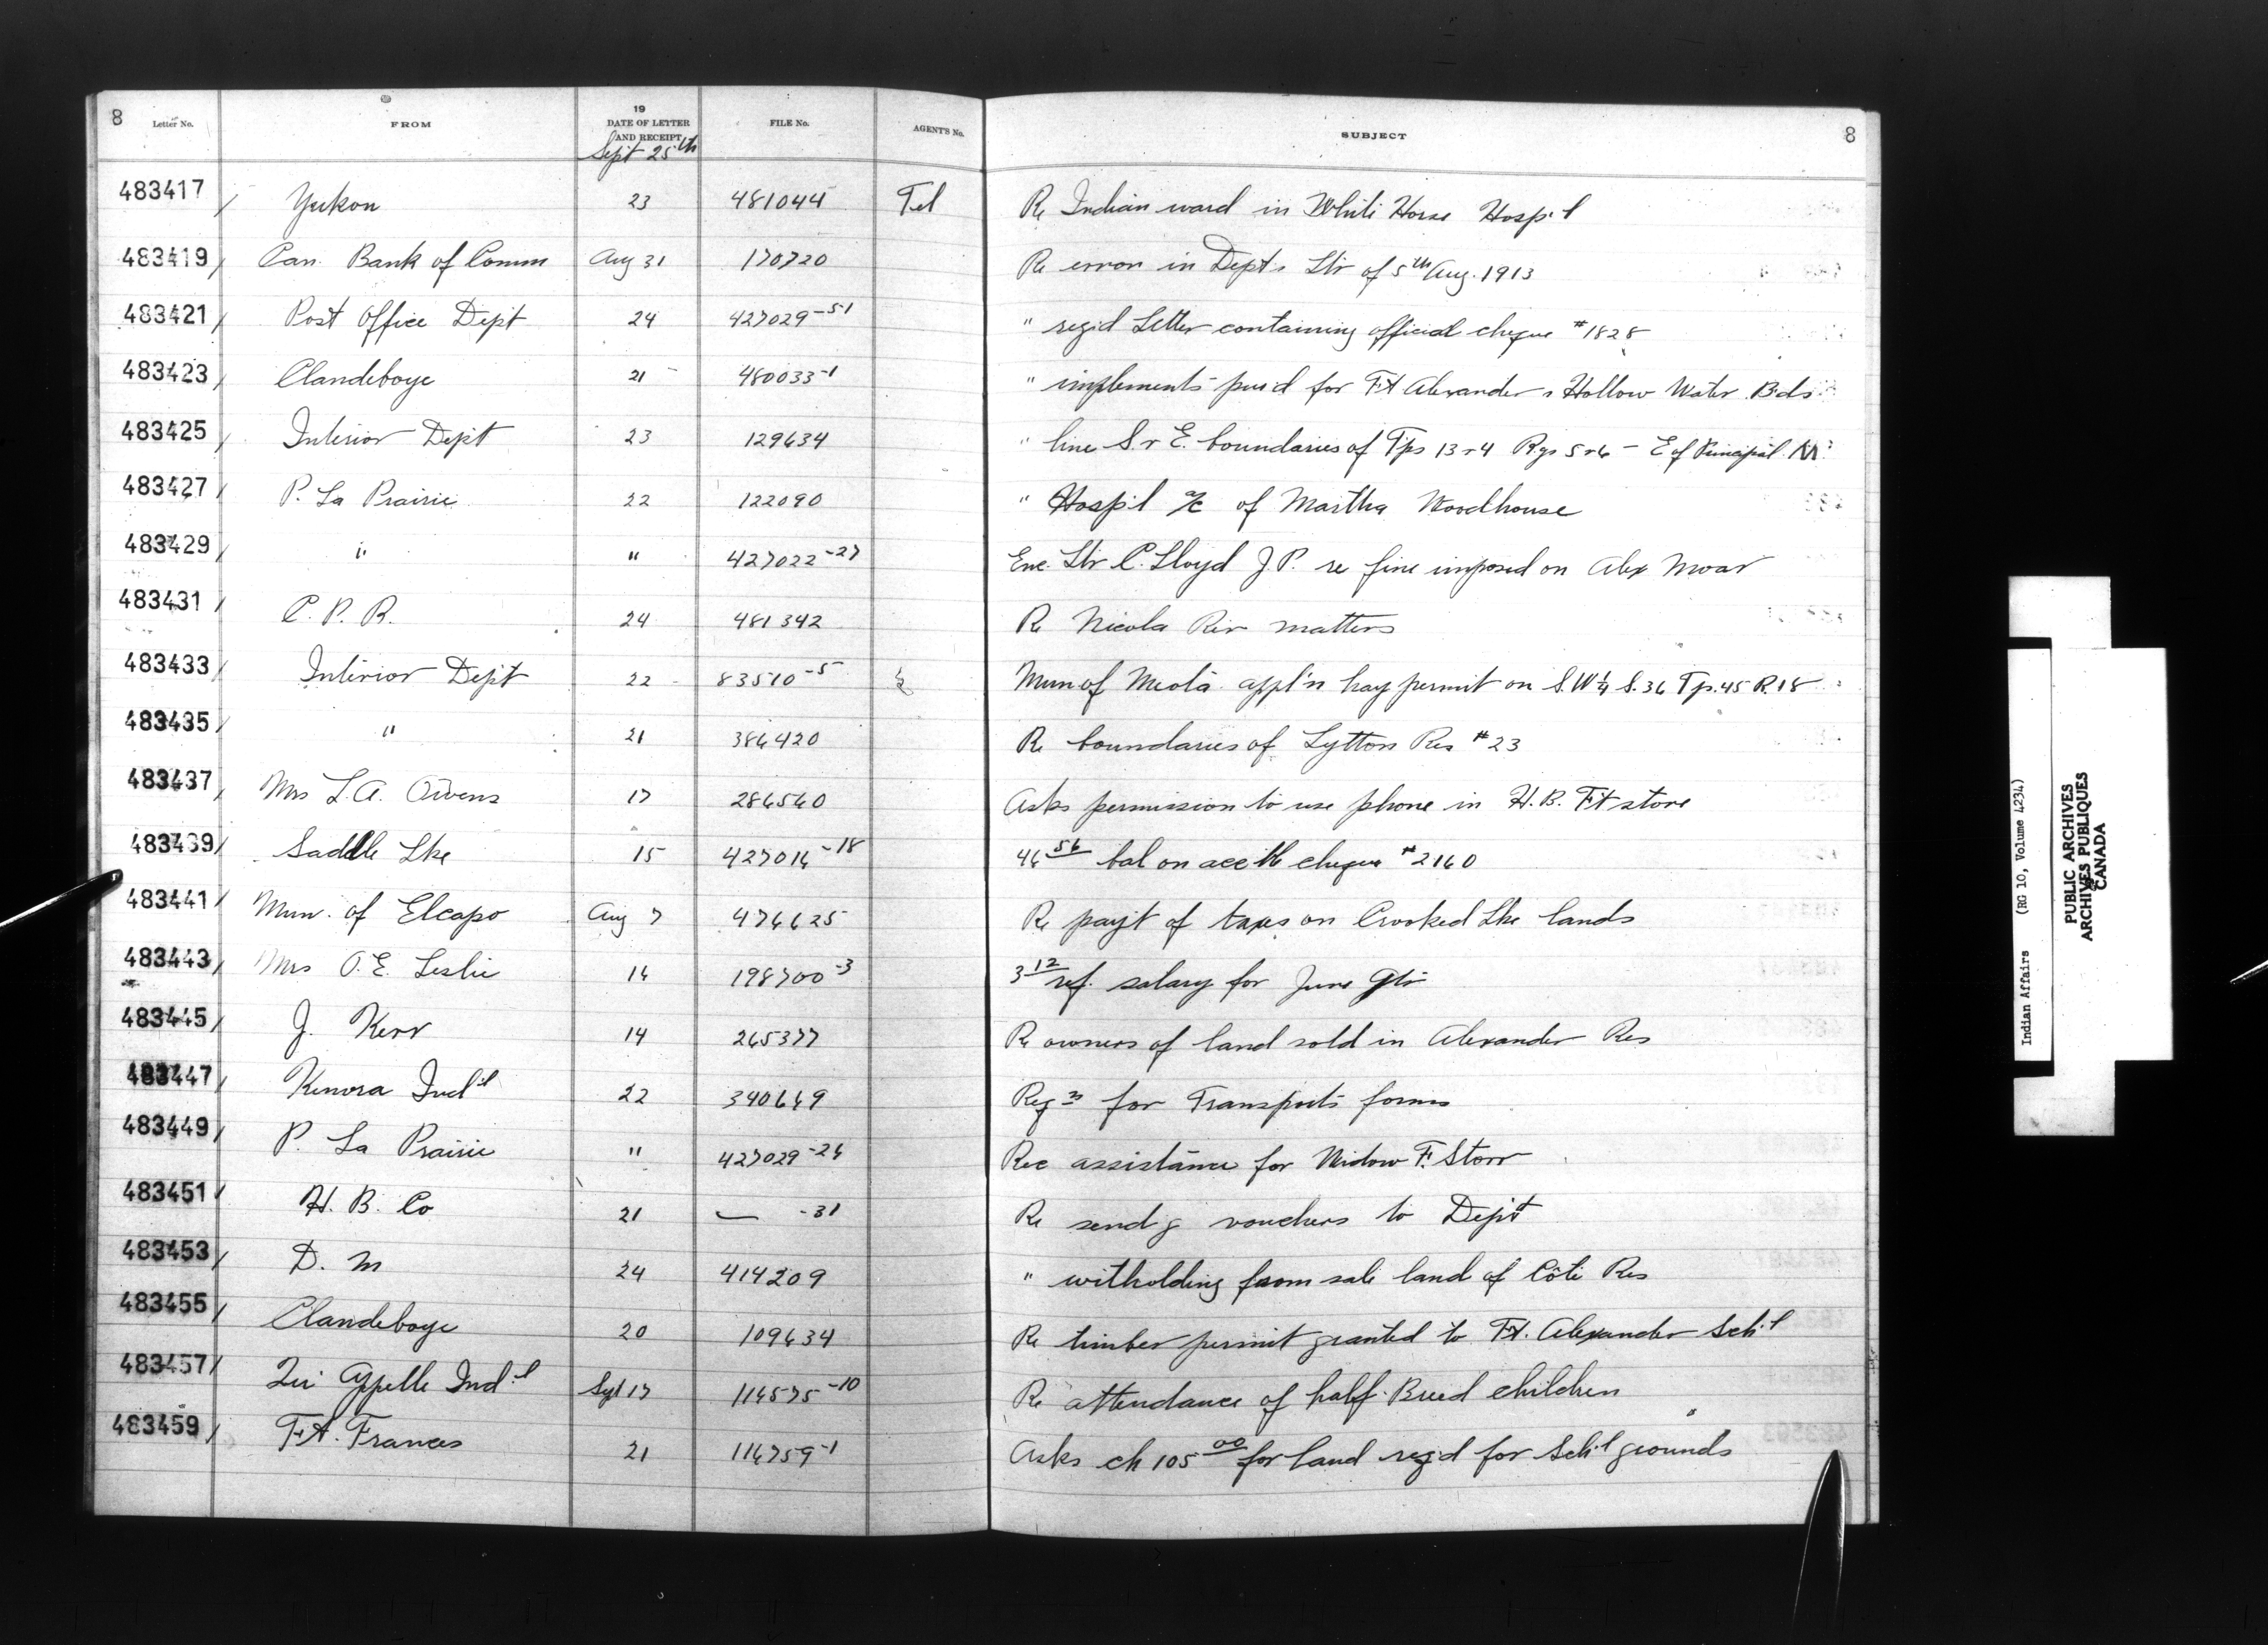 8 Letter No. FROM 19 DATE OF LETTER AND RECEIPT FILE No. AGENT'S No. SUBJECT 8
Sept 25th
483417 Yukon 23 481044 Tel Re Indian ward in White Horse Hosp'l
483419 Can. Bank of Comm Aug 31 170720 Re error in Dept's Ltr of 5th Aug. 1913
483421 Post Office Dept 24 427029-51 " regid Letter containing official cheque #1828
483423 Clandeboye 21 480033-1 " implements pur'd for Ft Alexander & Hollow Water Bds
483425 Interior Dept 23 129634 " line S & E. boundaries of Tps 13 & 4 Rgs 5 & 6 - E of Principal M
483427 P. La Prairie 22 122090 " Hosp'l a/c of Martha Woodhouse
483429 " " 427022-27 Enc. Ltr C. Lloyd J.P. re fine imposed on Alex Moar
483431 C. P. R. 24 481342 Re Nicola Riv matters
483433 Interior Dept 22 83510-5 Mun of Meota appl'n hay permit on S.W 1/4 S. 36 Tp. 45 R. 18
483435 " 21 386420 Re boundaries of Lytton Res #23
483437 Mrs L.A. Owens 17 286540 Asks permission to use phone in H.B. Ft store
483439 Saddle Lke 15 427016-18 46 56 bal on acc cheque #2160
483441 Mun. of Elcapo Aug 7 476625 Re payt of taxes on Crooked Lke lands
483443 Mrs O.E. Leslie 14 198700-3 3 12 ref. salary for June Qtr
483445 J. Kerr 14 265377 Re owners of land sold in Alexander Res
483447 Kenora Ind'l 22 340649 Reqn for Transport forms
483449 P. La Prairie " 427029-24 Rec assistance for Widow F. Storr
483451 H. B. Co 21 — -31 Re send'g vouchers to Dept
483453 D. M 24 414209 " witholding from sale land of Côté Res
483455 Clandeboye 20 109634 Re timber permit granted to Ft. Alexander Sch'l
483457 Qu'Appelle Ind'l Sept 17 114575-10 Re attendance of half-Breed children
483459 Ft. Frances 21 114759-1 Asks ch 105 00 for land req'd for Sch'l grounds
Indian Affairs (RG 10, Volume 4234)
PUBLIC ARCHIVES
ARCHIVES PUBLIQUES
CANADA